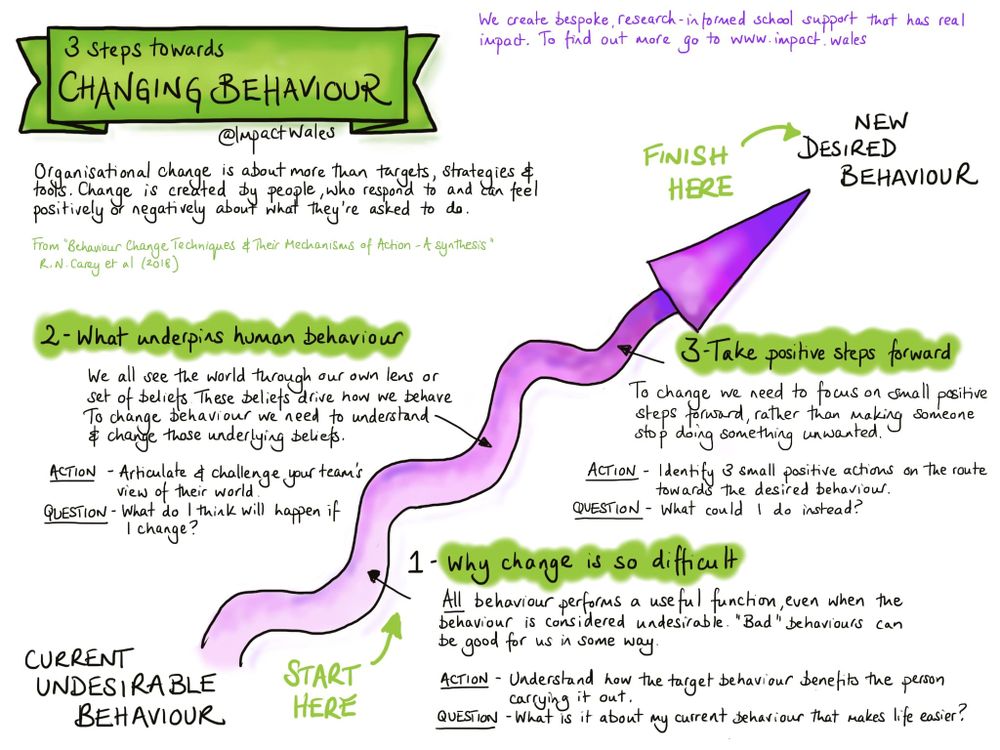 We create bespoke, research-informed school support that has real
impact. To find out more go to www.impact.wales
3 steps towards
CHANGING BEHAVIOUR
@ImpactWales
Organisational change is about more than targets, strategies &
tools. Change is created by people, who respond to and can feel
positively or negatively about what they're asked to do.
From "Behaviour Change Techniques & Their Mechanisms of Action - A synthesis"
R.N. Carey et al (2018)
NEW
DESIRED
BEHAVIOUR
FINISH
HERE
2 - What underpins human behaviour
We all see the world through our own lens or
set of beliefs. These beliefs drive how we behave
To change behaviour we need to understand
& change those underlying beliefs.
ACTION - Articulate & challenge your team's
view of their world.
QUESTION - What do I think will happen if
I change?
3 - Take positive steps forward
To change we need to focus on small positive
steps forward, rather than making someone
stop doing something unwanted.
ACTION - Identify 3 small positive actions on the route
towards the desired behaviour.
QUESTION - What could I do instead?
1 - Why change is so difficult
All behaviour performs a useful function, even when the
behaviour is considered undesirable. "Bad" behaviours can
be good for us in some way.
ACTION - Understand how the target behaviour benefits the person
carrying it out.
QUESTION - What is it about my current behaviour that makes life easier?
START
HERE
CURRENT
UNDESIRABLE
BEHAVIOUR